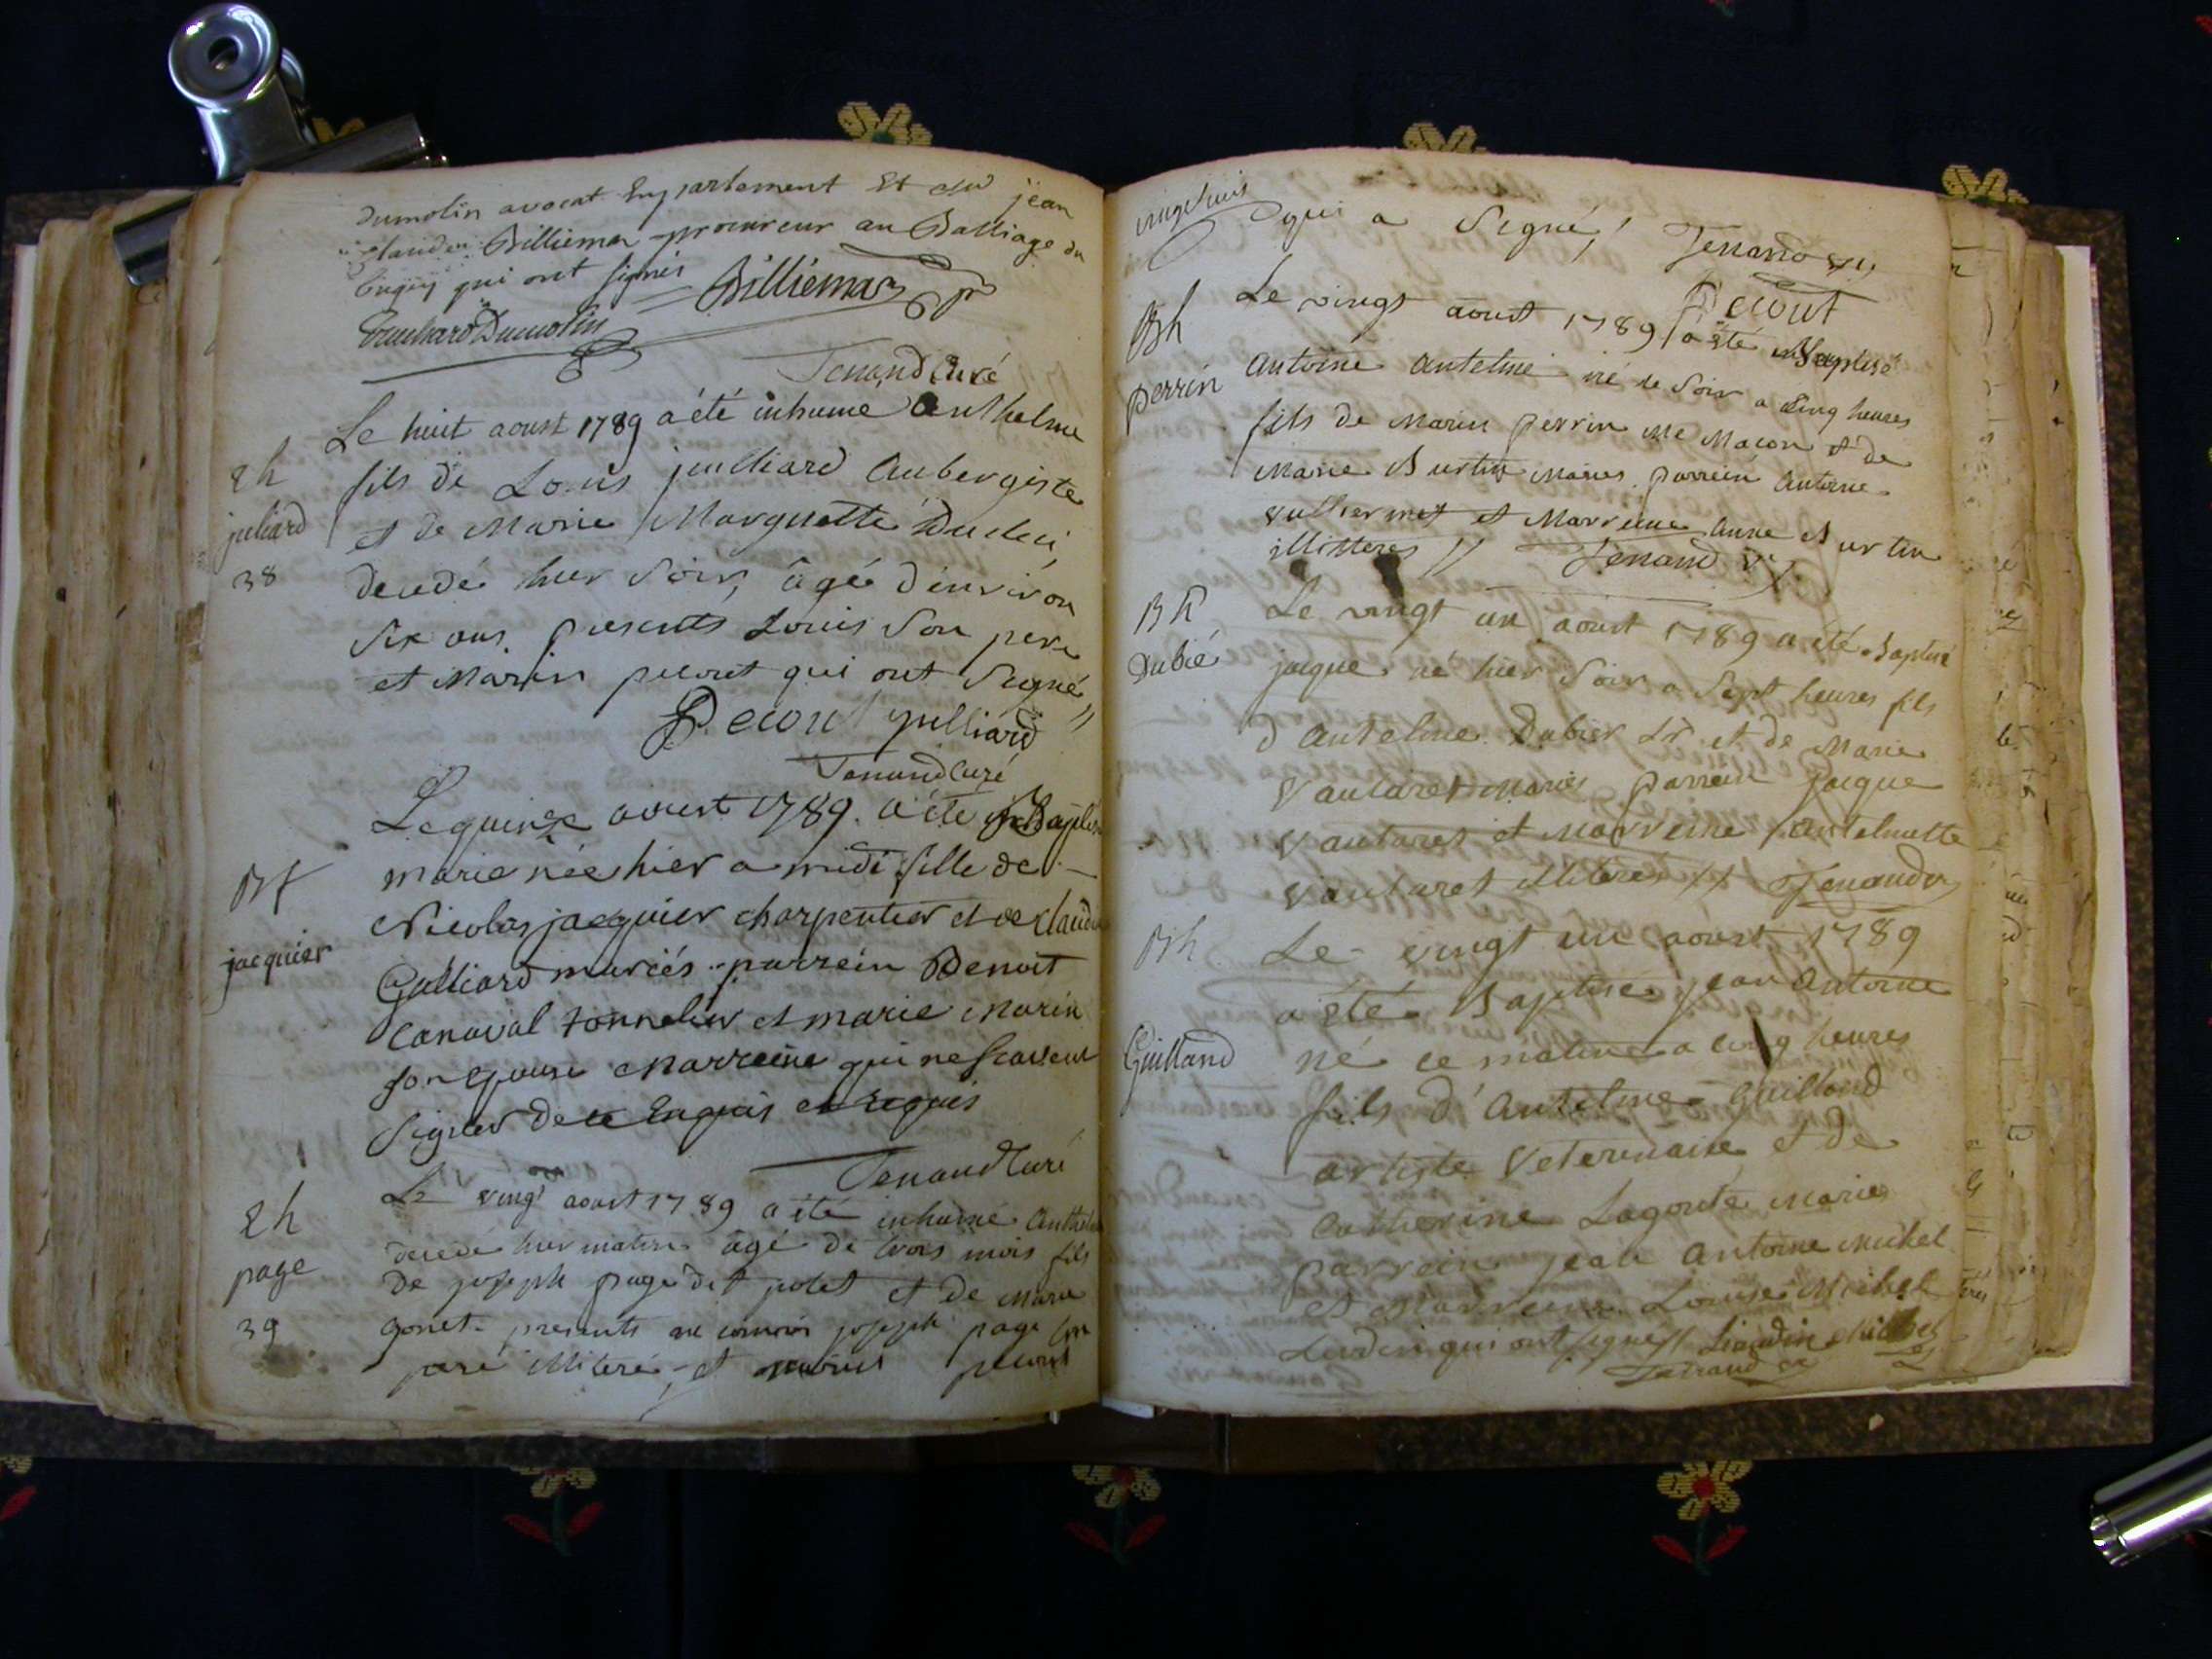 Dumolin avocat En parlement Et du jean
claude Billiemaz procureur au Balliage du
Bugey qui ont signés Billiemaz
Tenand Curé
Le huit aoust 1789 a été inhumé Anthelme
2h
julliard
38
fils de Louis julliard Aubergiste
et de Marie Marguette
decedé hier soir, âgé d'environ
six ans, presents Louis son pere
et Marin pecout qui ont signé //
Pecout julliard
Tenand Curé
Le quinze aoust 1789. a été Baptisé
Bf
jacquier
marie née hier a midi fille de
Nicolas jacquier charpentier et de Claudine
Galliard mariés. parrein Benoit
Canaval tonnelier et marie Marin
son epouse Marreine qui ne scavent
signer de ce Enquis et requis
Tenand Curé
2h
page
39
Le vingt aoust 1789 a été inhumé Anthelme
decedé hier matin âgé de trois mois fils
de joseph page dit polet et de Marie
Gonet. presents joseph page son
pere illiteré et marin pecout
vingt huit
qui a signé / Tenand
Pecout
Bh
perrin
Le vingt aoust 1789 a été Baptisé
Antoine Antelme né ce soir a cinq heures
fils de Marin perrin Me Macon et de
Marie Burtin Mariés. parrein Antoine
vulliermet et Marreine Anne Burtin
illitteres // Tenand
Bh
Dubié
Le vingt un aoust 1789 a été Baptisé
jaque né hier soir a sept heures fils
d'Antelme Dubier et de Marie
Vautaret Mariés parrein jaque
Vautaret et Marreine Antelmette
Vautaret illiteres // Tenand
Bh
Guilland
Le vingt un aoust 1789
a été Baptisé jean Antoine
né ce matin a cinq heures
fils d'Antelme Guilland
artiste Veterinaire et de
Catherine Lagoute Mariés
parrein jean Antoine Michel
et Marreine Louise Michel
qui ont signé // Michel
Tenand